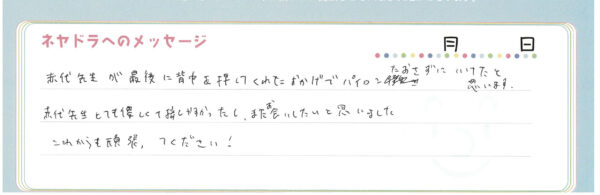 ネヤドラへのメッセージ
月 日
赤代先生が最後に背中を押してくれたおかげでパイロンたおさずにいけたと
思います。
赤代先生とても優しくて接しやすかったし、またお会いしたいと思いました
これからも頑張ってください!